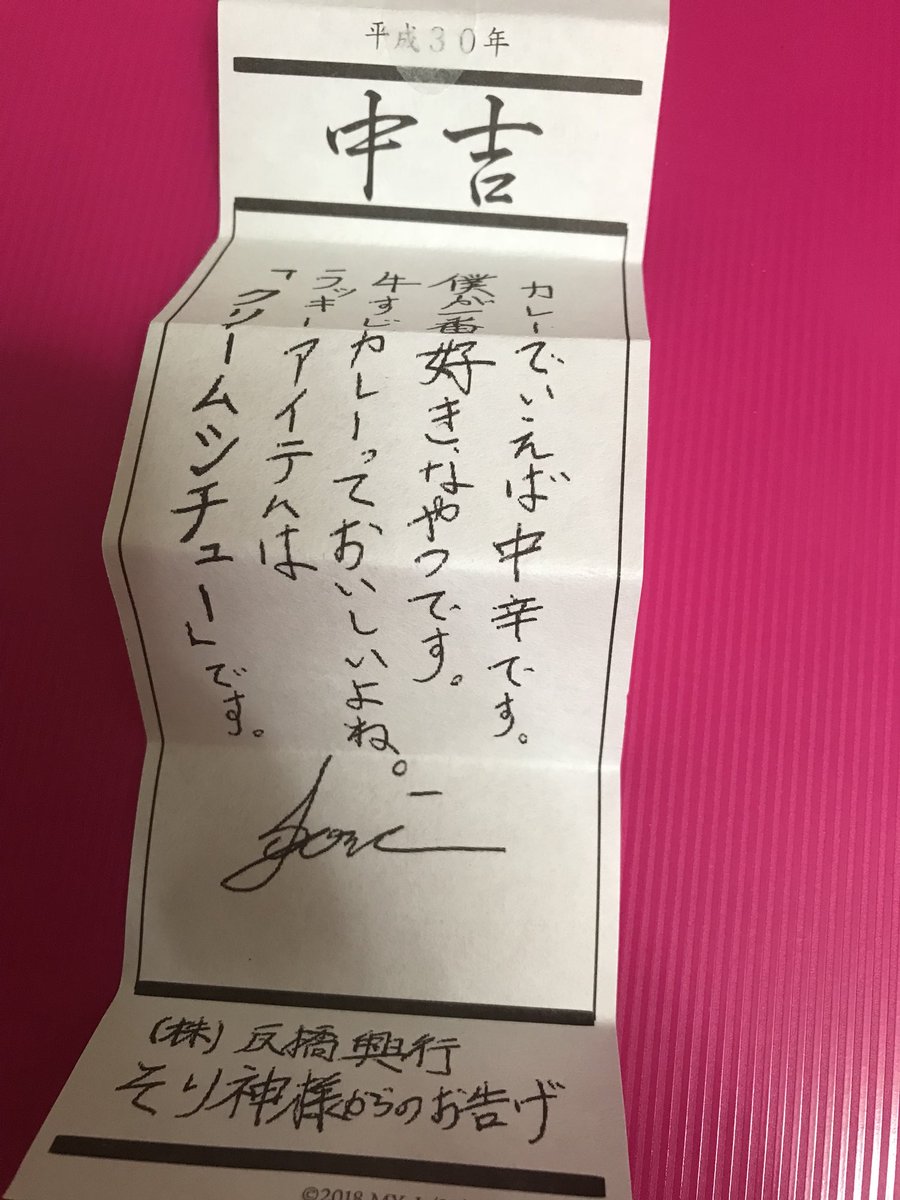 平成30年
中吉
カレーでいえば中辛です。
僕が一番好きなやつです。
牛すじカレーっておいしいよね。
ラッキーアイテムは
「クリームシチュー」です。
(株)反橋興行
そり神様からのお告げ
©2018